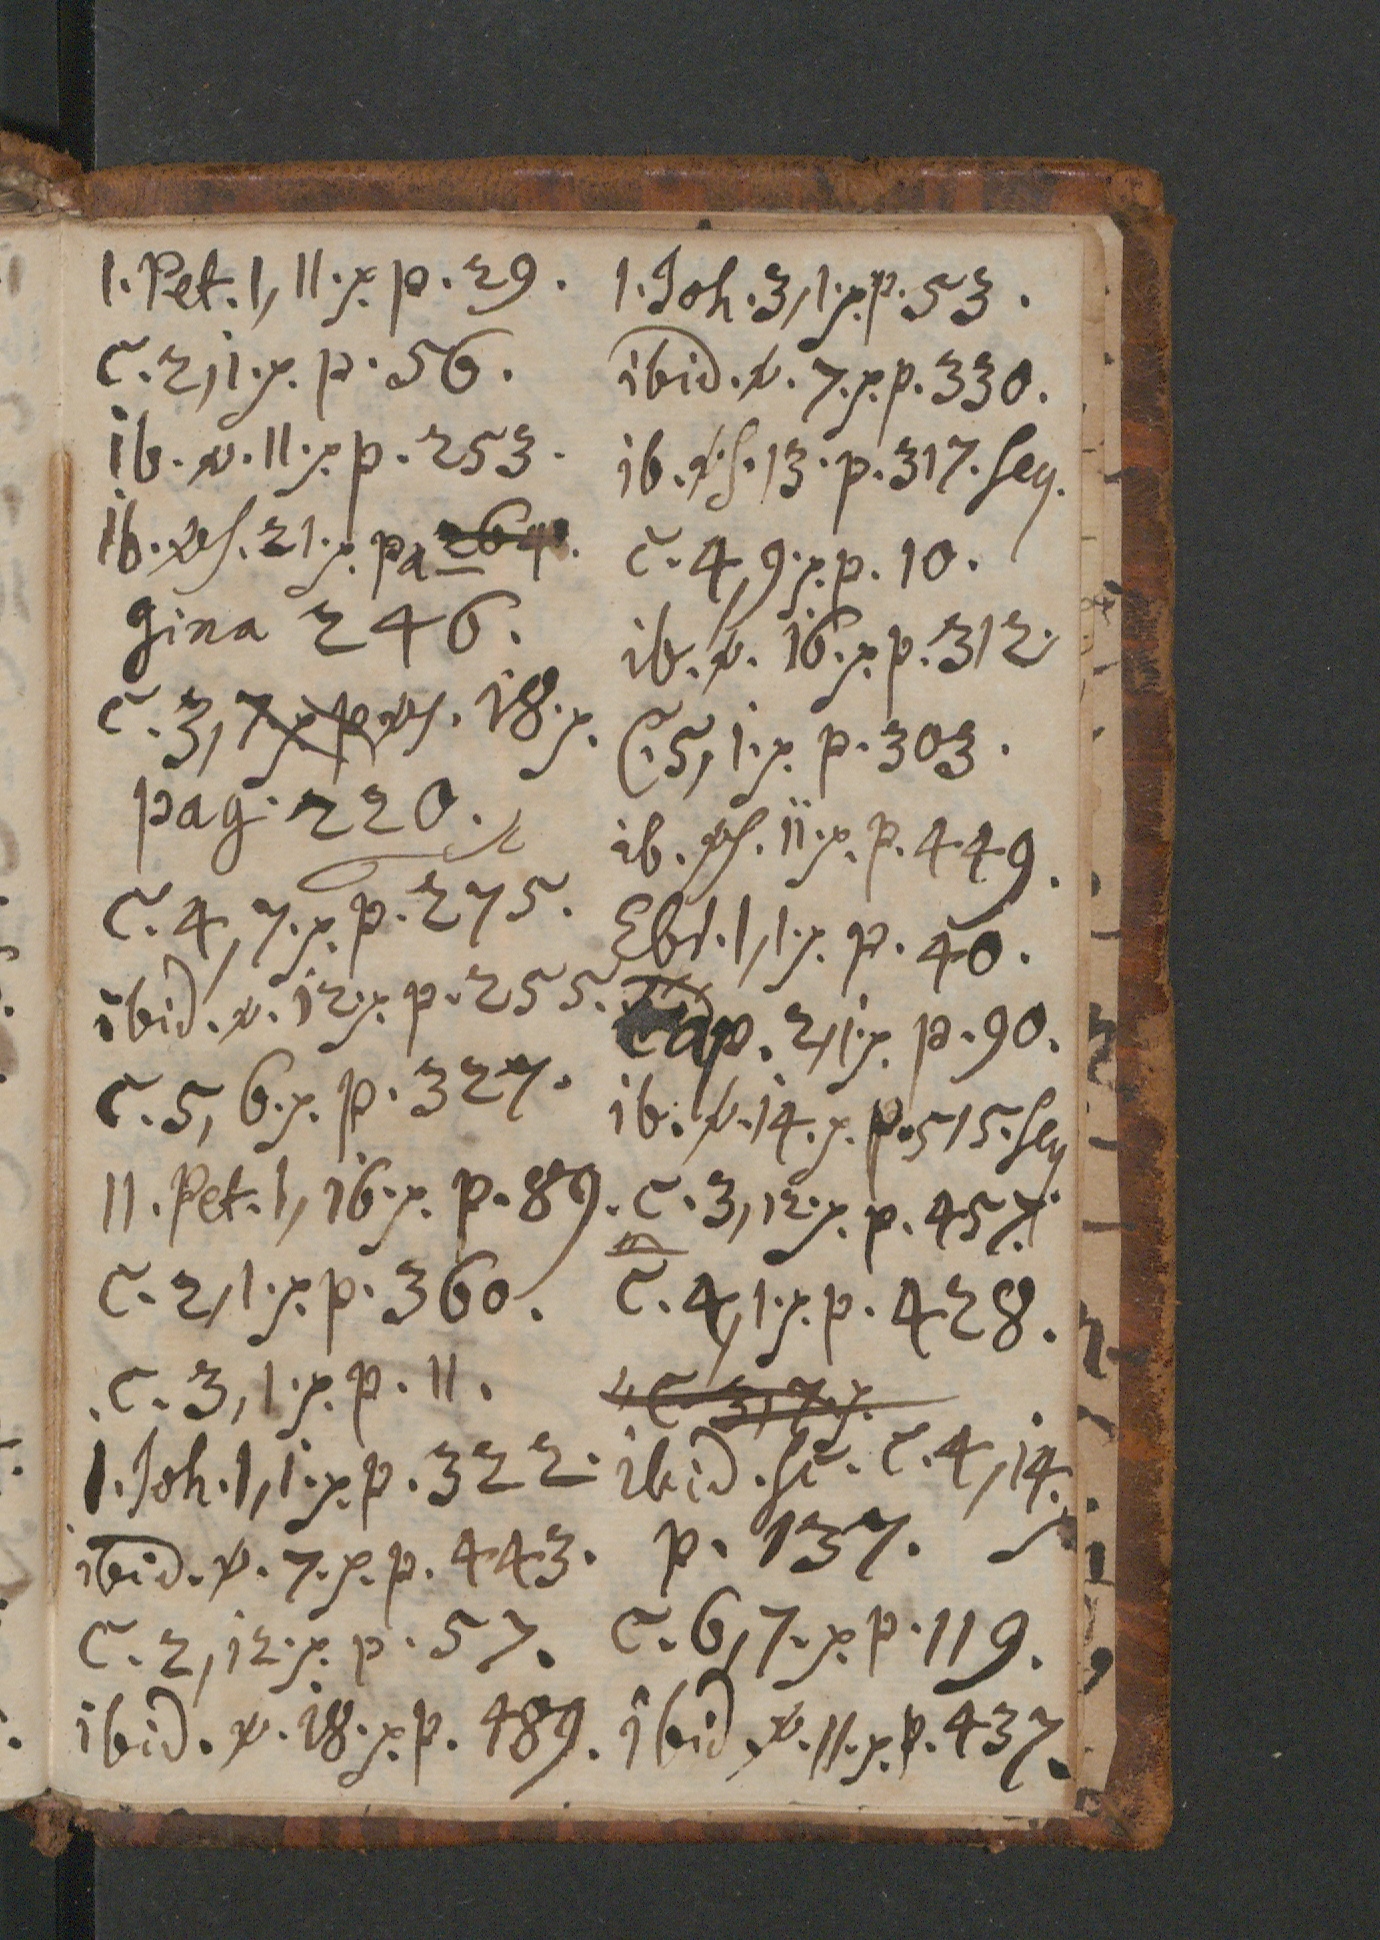 1. Pet. 1, 11. x. p. 29.
C. 2, 11. x. p. 56.
ib. v. 11. x. p. 253.
ib. vs. 21. x. pa 264.
gina 246.
C. 3, 7. x. p. vs. 18. x.
pag. 220.
C. 4, 7. x. p. 275.
ibid. v. 12. x. p. 255.
C. 5, 6. x. p. 327.
11. Pet. 1, 16. x. p. 89.
C. 2, 1. x. p. 360.
C. 3, 1. x. p. 11.
1. Joh. 1, 1. x. p. 322.
ibid. v. 7. x. p. 443.
C. 2, 12. x. p. 57.
ibid. v. 18. x. p. 489.
1. Joh. 3, 1. x. p. 53.
ibid. v. 7. x. p. 330.
ib. vs. 13. p. 317. seq.
C. 4, 9. x. p. 10.
ib. v. 16. x. p. 312.
C. 5, 1. x. p. 303.
ib. vs. 11. x. p. 449.
Ebr. 1, 1. x. p. 40.
Cap. 2, 1. x. p. 90.
ib. v. 14. x. p. 515. seq
C. 3, 12. x. p. 457.
C. 4, 1. x. p. 428.
C. 3, 7. x.
ibid. sc. C. 4, 14.
p. 137.
C. 6, 7. x. p. 119.
ibid. v. 11. x. p. 437.